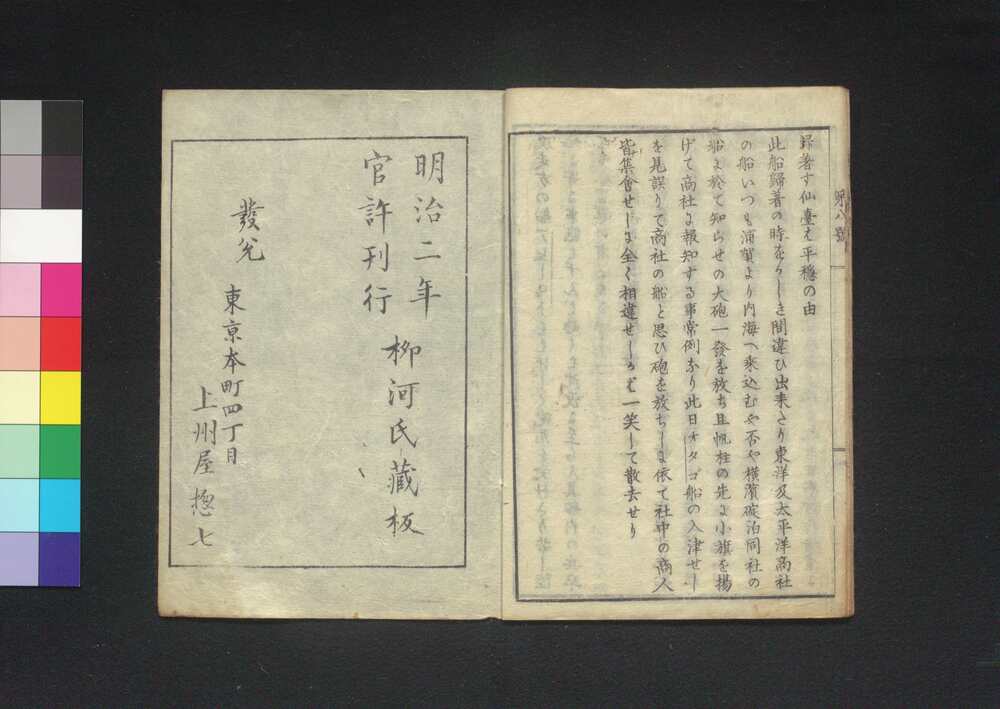 第八號
歸着す仙臺は平穏の由
此船歸着の時をかしき間違ひ出来たり東洋及太平洋商社
の船いつも浦賀より内海へ乗込むや否や横濱碇泊同社の
船に於て知らせの大砲一發を放ち且帆柱の先に小旗を揚
げて商社に報知する事常例なり此日チタゴ船の入津せし
を見誤りて商社の船と思ひ砲を放ちしに依て社中の商人
皆集會せしに全く相違せしかば一笑して散去せり
明治二年
官許刊行 柳河氏藏板
發兌
東京本町四丁目
上州屋惣七